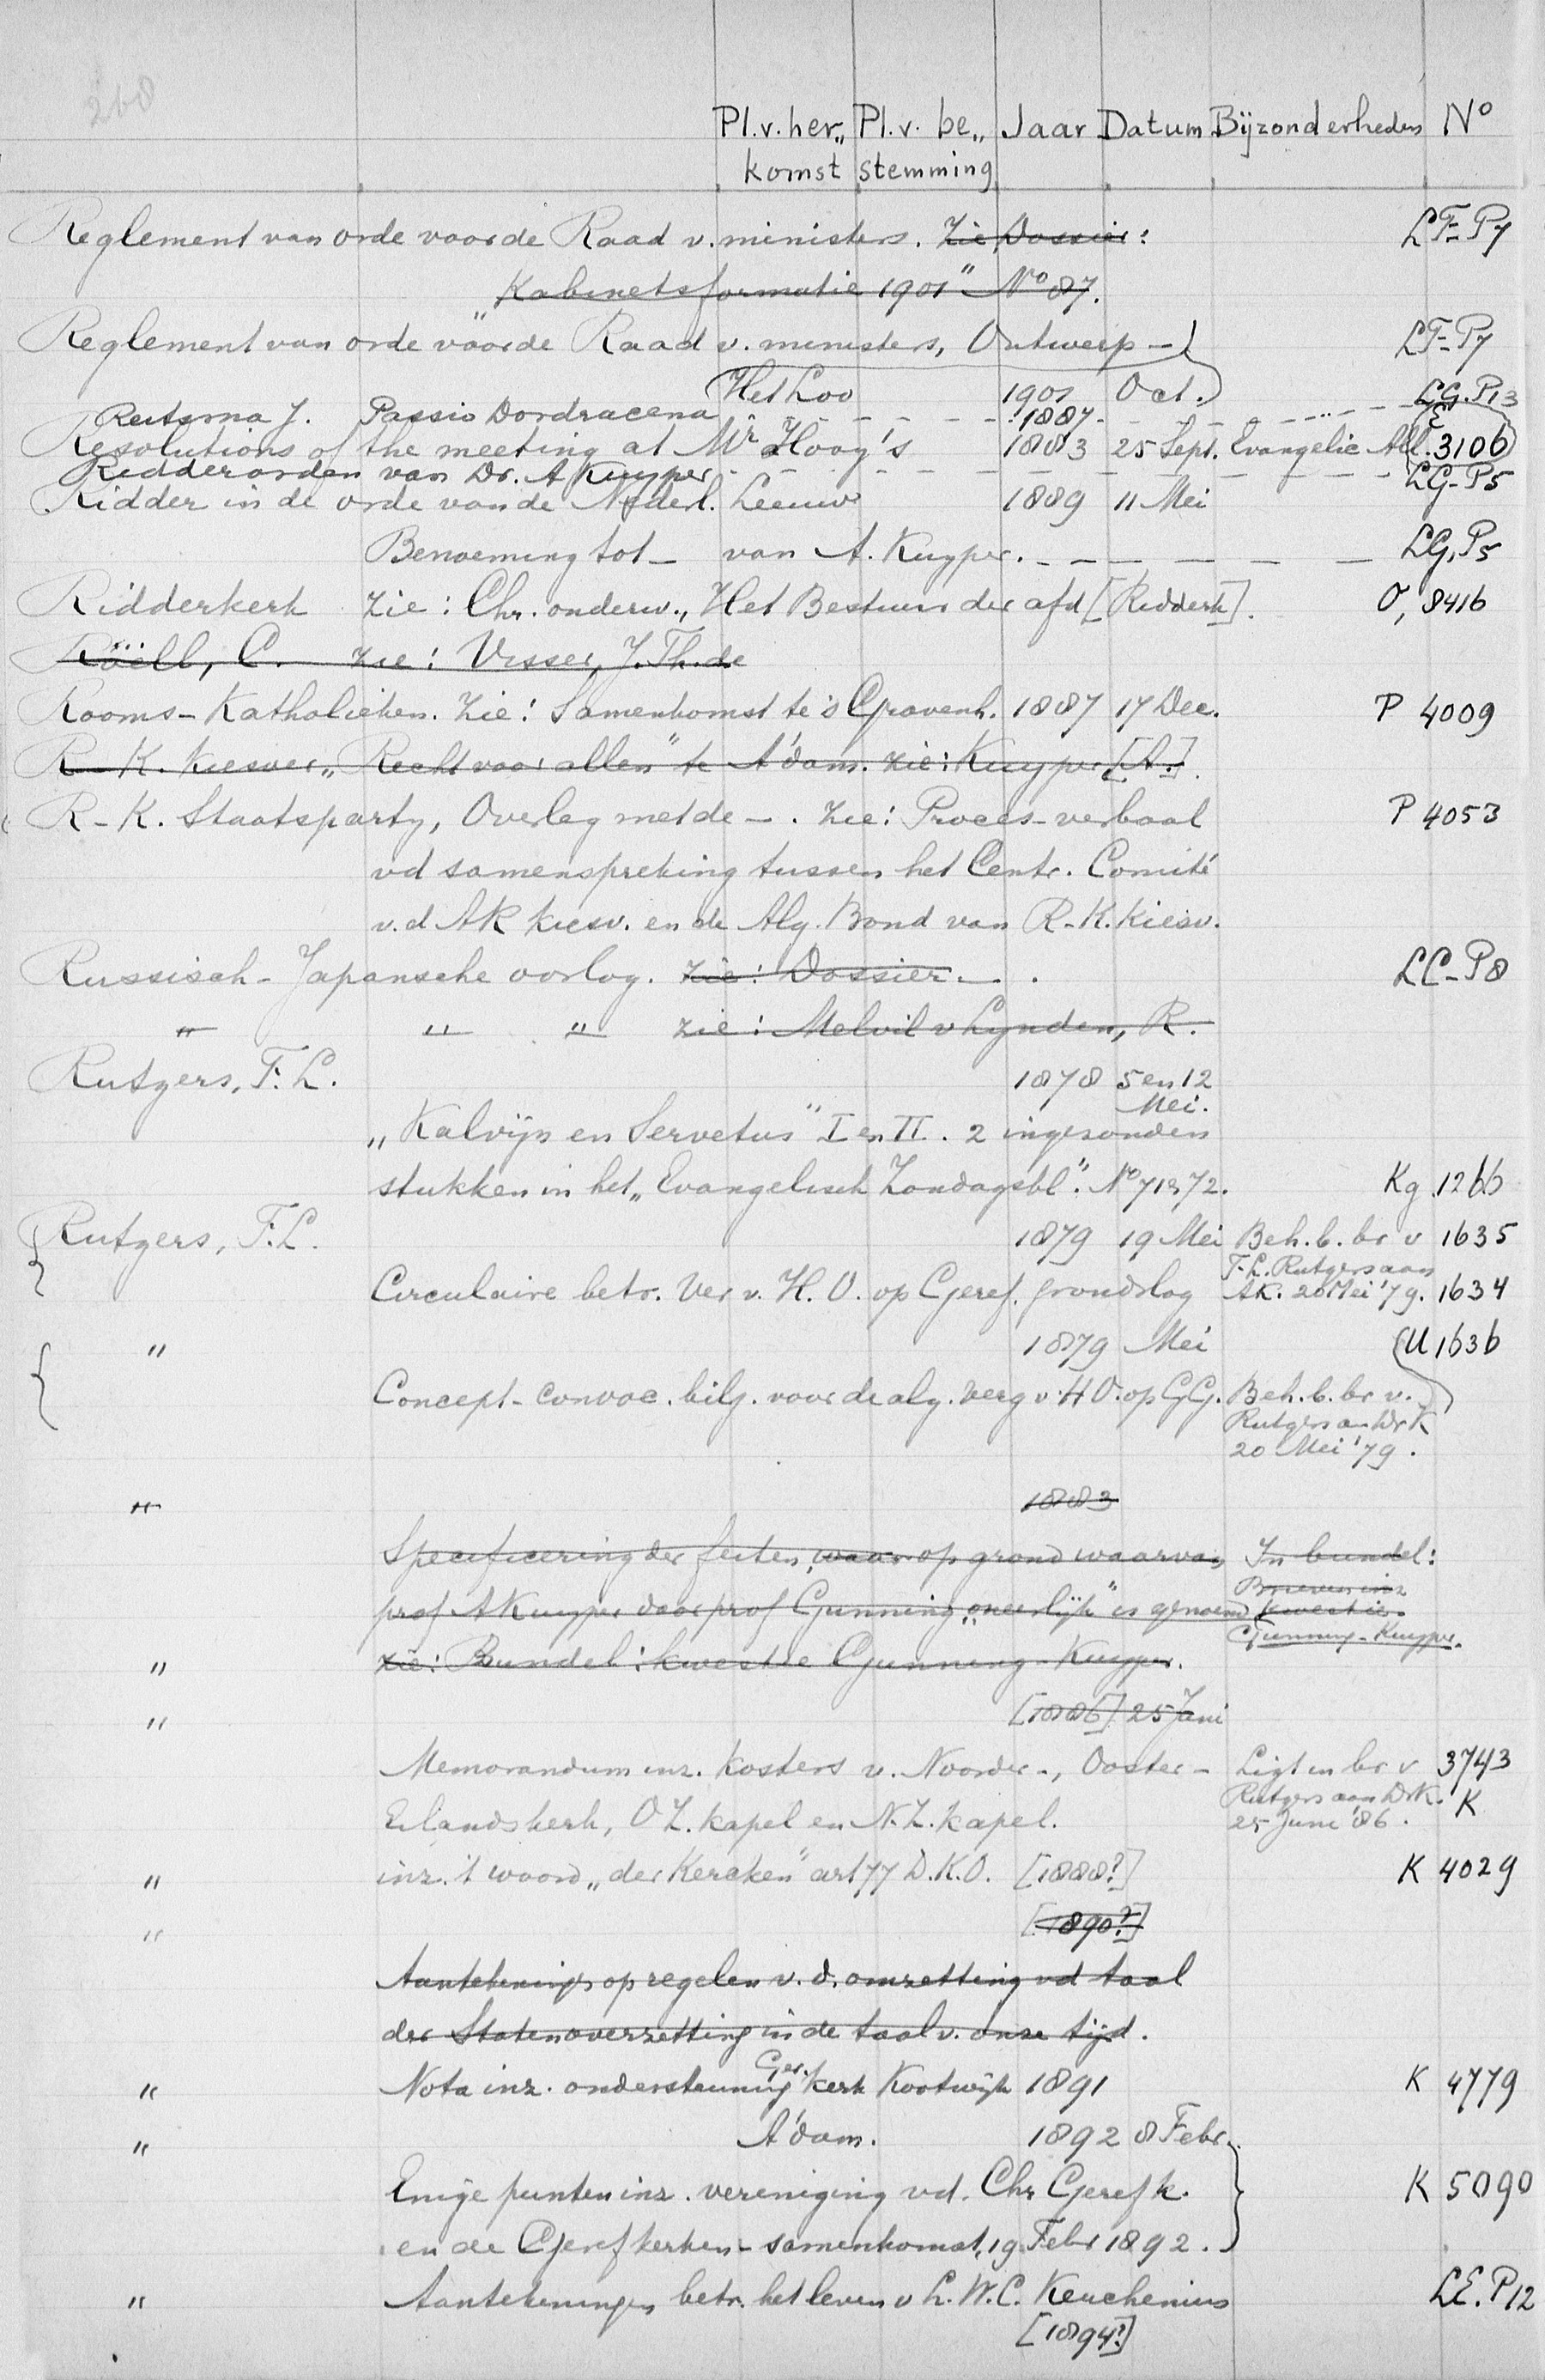 268
Pl.v.her„ Pl.v. be„ Jaar Datum Bijzonderheden No
komst stemming
Reglement van orde voor de Raad v. ministers. Zie Dossier: LF-P7
„Kabinetsformatie 1901" No 87.
Reglement van orde voor de Raad v. ministers, Ontwerp - LF-P7
Het Loo 1901 Oct.
Reitsma J. Passio Dordracena 1887 LG.P13
Resolutions of the meeting at Mr Hoog's 1883 25 Sept. Evangelic All. E 3106
Ridderorden van Dr. A Kuyper LG-P5
Ridder in de orde van de Nederl. Leeuw 1889 11 Mei
Benoeming tot - van A. Kuyper. LG.P5
Ridderkerk Zie: Chr. onderw., Het Bestuur der afd [Ridderk]. O, 8416
Röell, C. zie: Visser, J. Th. de
Rooms-Katholieken. Zie: Samenkomst te 's Gravenh. 1887 17 Dec. P 4009
R-K. Kiesver. „Recht voor allen" te A'dam. zie: Kuyper [A.].
R-K. Staatsparty, Overleg met de -. Zie: Proces-verbaal P 4053
vd samenspreking tussen het Centr. Comité
v.d AR kiesv. en de Alg. Bond van R-K. Kiesv.
Russisch-Japansche oorlog. Zie: Dossier -. LC-P8
" " " zie: Melvil v Lynden, R.
Rutgers, F.L. 1878 5 en 12
Mei.
„Kalvijn en Servetus" I en II. 2 ingezonden
stukken in het „Evangelisch Zondagsbl". No 71 & 72. Kg 1266
Rutgers, F.L. 1879 19 Mei Beh. b. br v 1635
Circulaire betr. Ver v. H.O. op Geref. grondslag F.L. Rutgers aan
AK. 20 Mei '79. 1634
" 1879 Mei U 1636
Concept-convoc. bilj. voor de alg. verg v. HO. op GG. Beh. b. br v.
Rutgers a Dr K
20 Mei '79.
" 1883
Specificering der feiten, waar op grond waarvan In bundel:
prof A Kuyper door prof Gunning „oneerlijk" is genoemd Brieven inz
kwestie
Gunning-Kuyper.
" zie: Bundel: kwestie Gunning-Kuyper.
" [1886] 25 Juni
Memorandum inz. kosters v. Noorder-, Ooster- Ligt in br v 3743
Eilandskerk, O.Z. kapel en N.Z. kapel. Rutgers aan Dr K. K
25 Juni '86.
" inz. 't woord „der Kercken" art 77 D.K.O. [1888?] K 4029
" [1890?]
Aantekeningen op regelen v. d. omzetting vd taal
der Statenoverzetting in de taal v. onze tijd.
" Nota inz. ondersteuning Ger. kerk Kootwijk 1891 K 4779
" A'dam. 1892 8 Febr.
Enige punten inz. vereniging vd. Chr Geref k. K 5090
en de Geref kerken - samenkomst, 19 Febr 1892.
" Aantekeningen betr. het leven v L.W.C. Keuchenius LE.P12
[1894?]